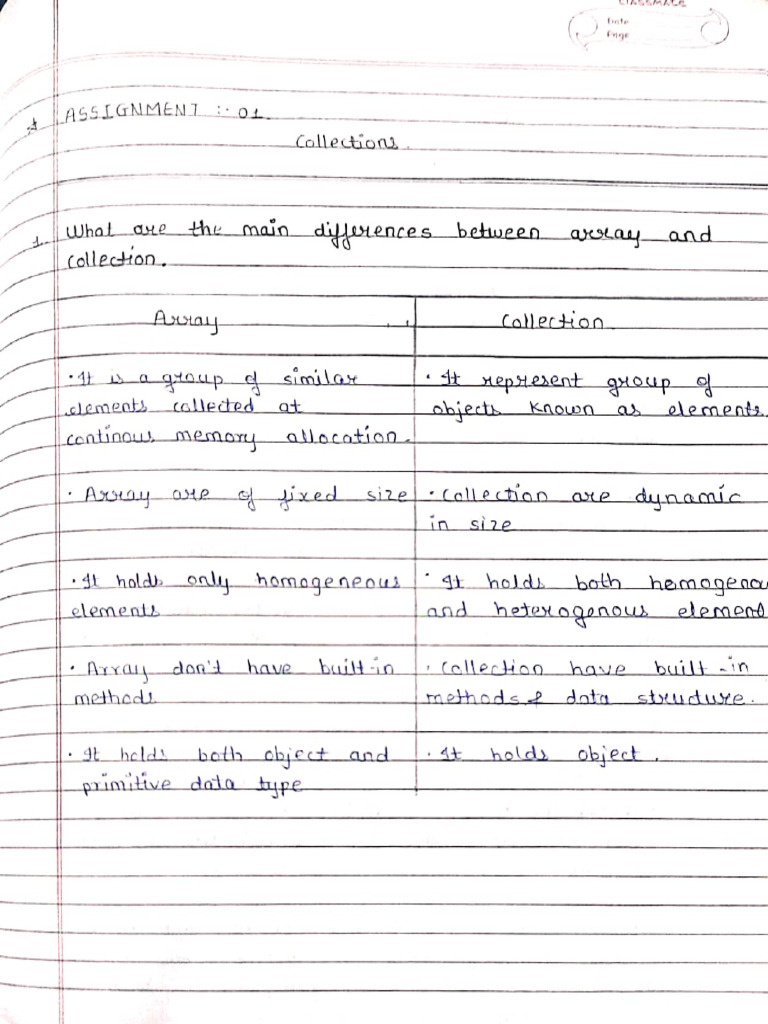 CLASSMATE
Date
Page
ASSIGNMENT :- 01
Collections.
1. What are the main differences between array and
collection.
Array
Collection
• It is a group of similar
elements collected at
continous memory allocation.
• It represent group of
objects known as elements.
• Array are of fixed size
• Collection are dynamic
in size
• It holds only homogeneous
elements
• It holds both homogeno
and heterogenous element
• Array don't have built-in
methods
• Collection have built-in
methods & data structure.
• It holds both object and
primitive data type
• It holds object.